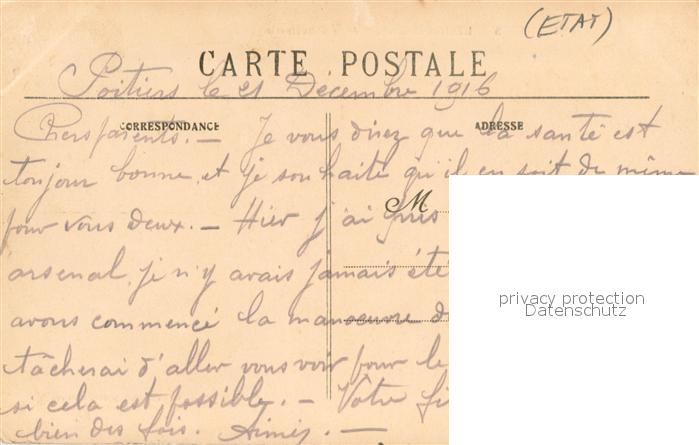 (ETAT)
CARTE POSTALE
Poitiers le 21 Decembre 1916
CORRESPONDANCE
ADRESSE
Chers parents. — Je vous direz que la santé est
toujour bonne et je souhaite qu'il en soit de même
pour vous deux. — Hier j'ai pris
M
arsenal, je n'y avais jamais été
privacy protection
Datenschutz
avons commencé la manoeuvre
tâcherai d'aller vous voir pour le
si cela est possible. — Votre
bien des fois.